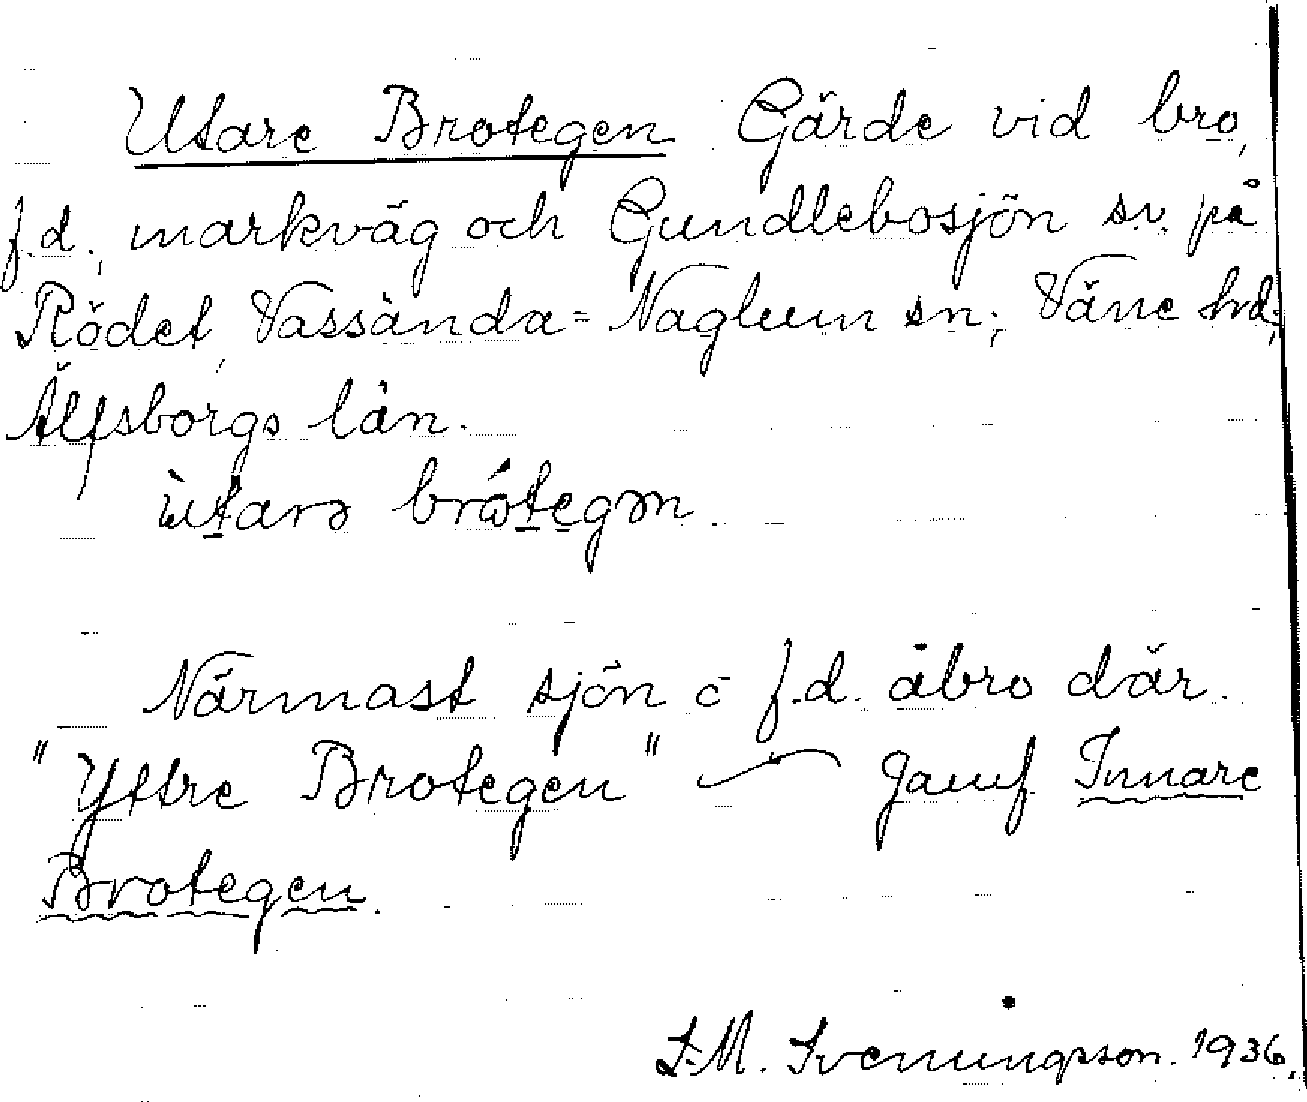 Utare Brotegen Gärde vid bro,
f.d. markväg och Gundlebosjön sv. på
Rödet, Vassända=Naglum sn, Väne hd,
Älfsborgs län.
ùtarə brótegən.
Närmast sjön o f.d. åbro där.
"Yttre Brotegen" Jämf. Innare
Brotegen.
Svenningsson. 1936.